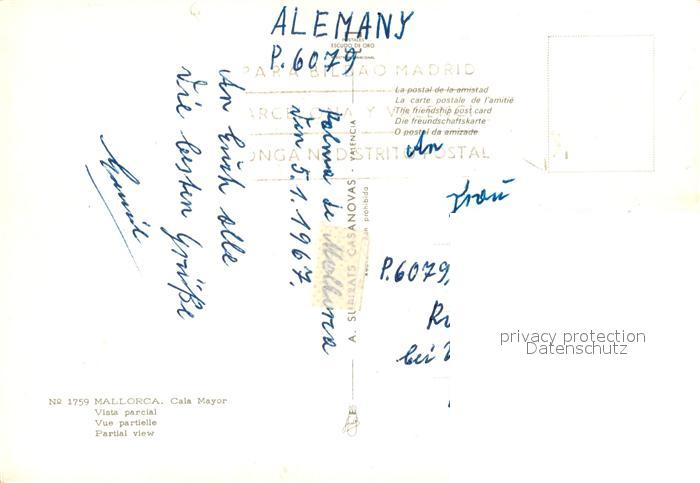 ALEMANY
P. 6079
POSTALES
ESCUDO DE ORO
PARA BILBAO MADRID
BARCELONA Y VALENCIA
PONGA Nº DISTRITO POSTAL
La postal de la amistad
La carte postale de l'amitié
The friendship post card
Die freundschaftskarte
O postal da amizade
Palma de Mallorca
den 5.1.1967.
An Euch alle
die besten Grüße
A. SUBIRATS CASANOVAS - VALENCIA
prohibida
An
Frau
P. 6079,
bei
privacy protection
Datenschutz
Nº 1759 MALLORCA. Cala Mayor
Vista parcial
Vue partielle
Partial view